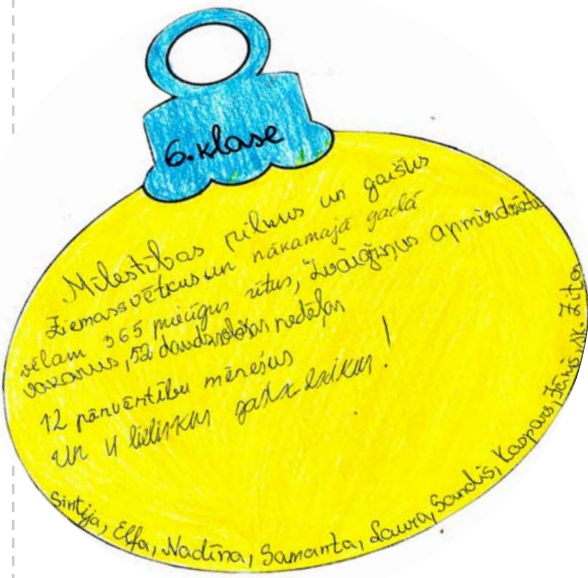 6. klase
Mīlestības pilnus un gaišus
Ziemassvētkus un nākamajā gadā
vēlam 365 priecīgus rītus, zvaigžņus apmirdzētus
vakarus, 52 daudzsološas nedēļas
12 pārvērtību mēnešus
un 4 lieliskus gadalaikus!
Sintija, Elfa, Nadīna, Samanta, Laura, Sandis, Kaspars, Jānis,